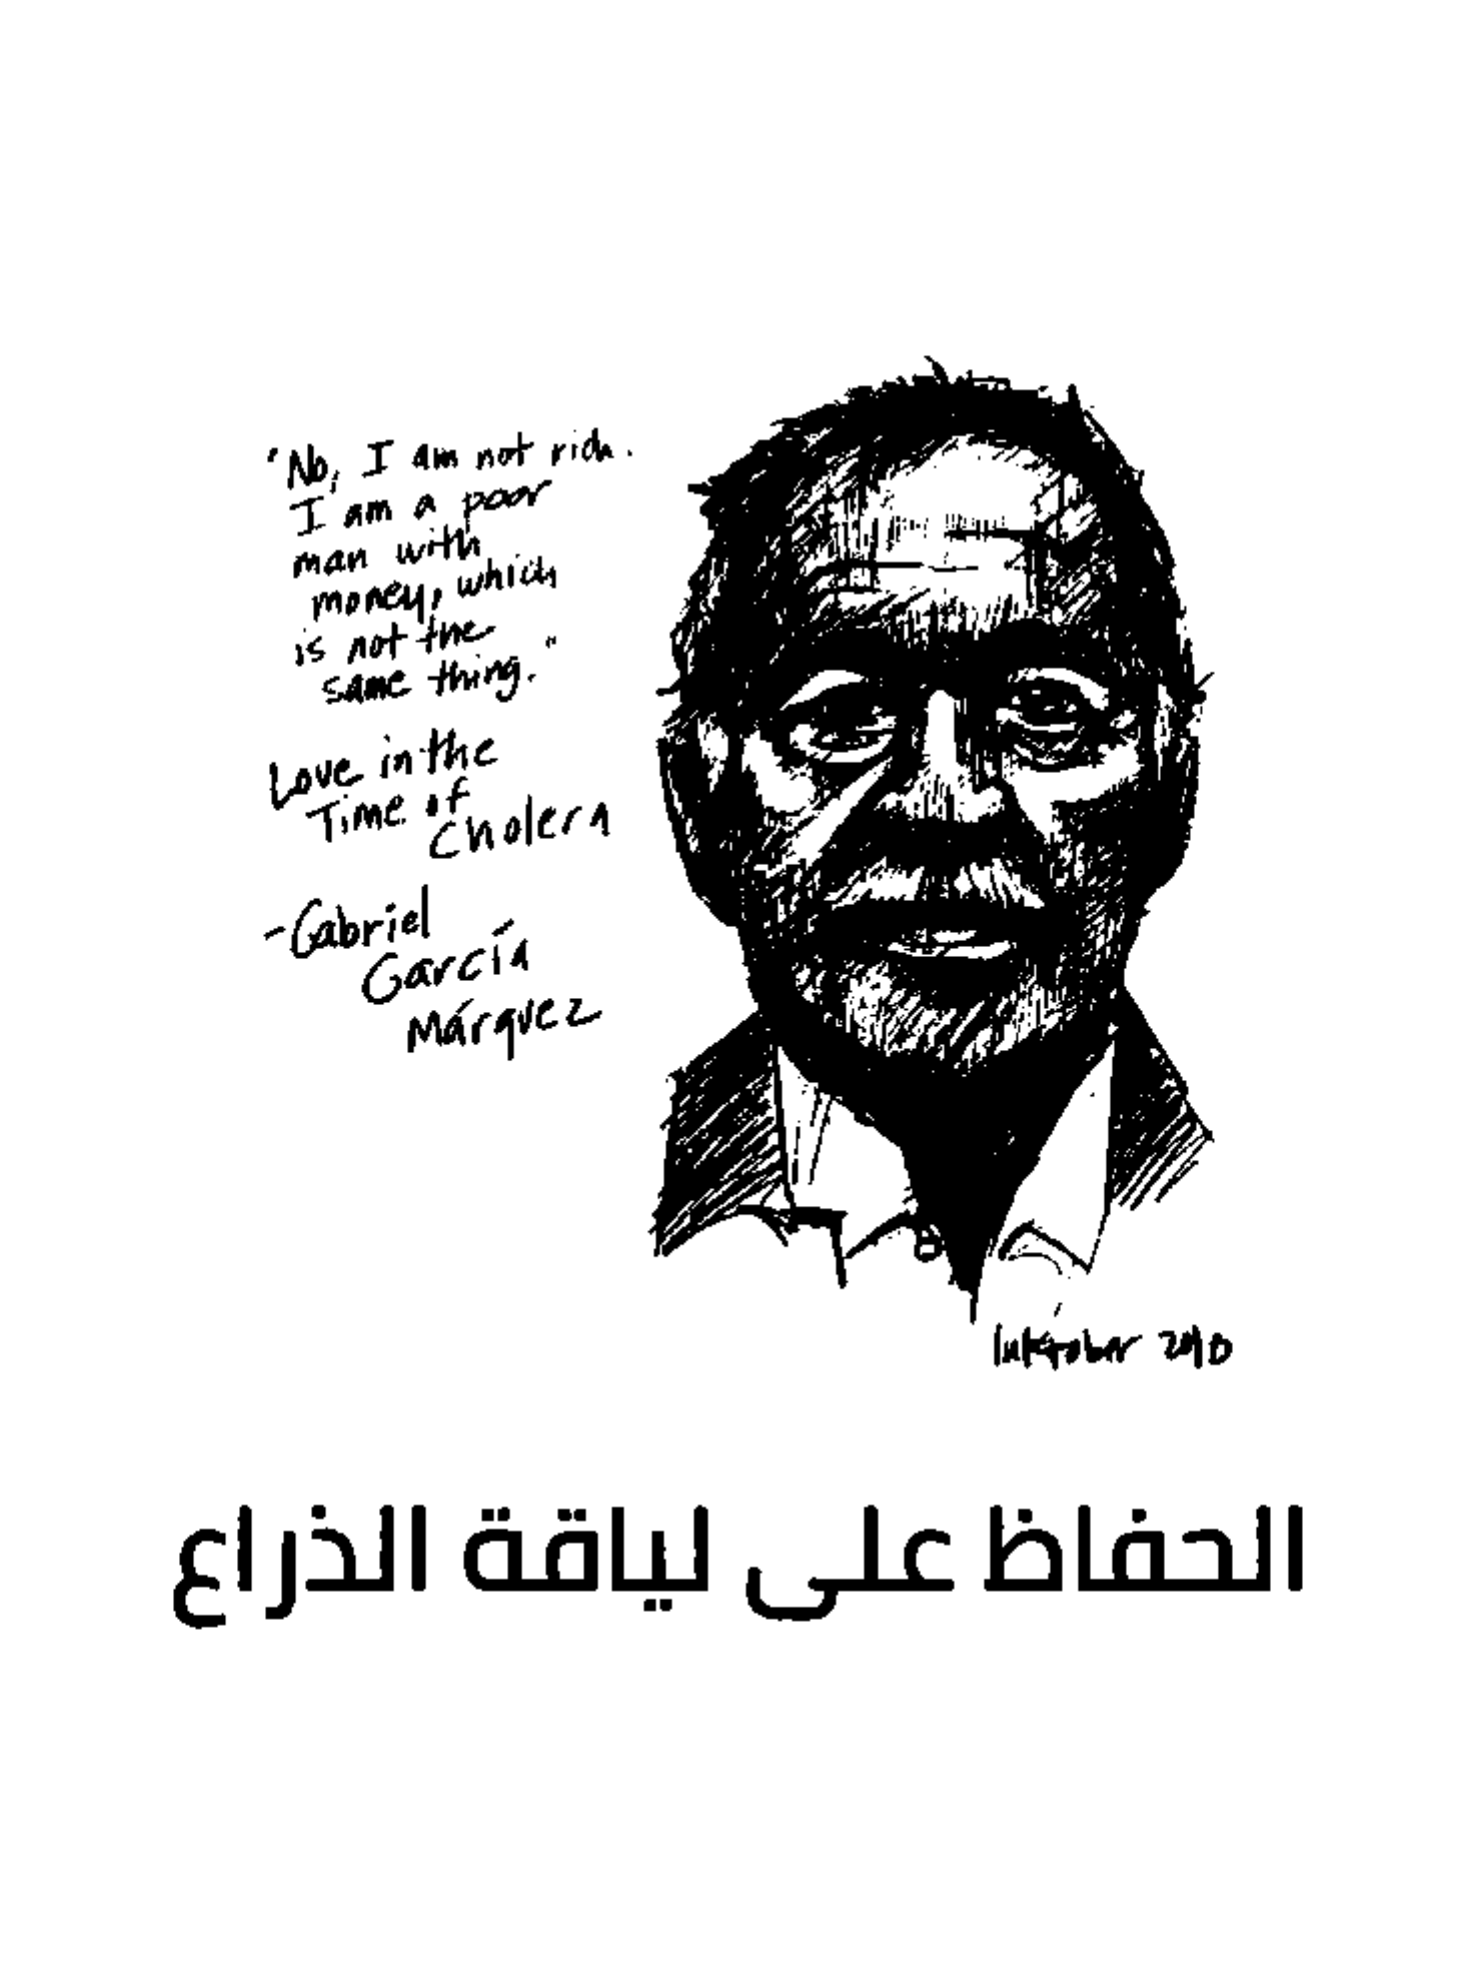 "No, I am not rich.
I am a poor
man with
money, which
is not the
same thing."
Love in the
Time of
Cholera
-Gabriel
García
Márquez
Inktober 2010
الحفاظ على لياقة الذراع